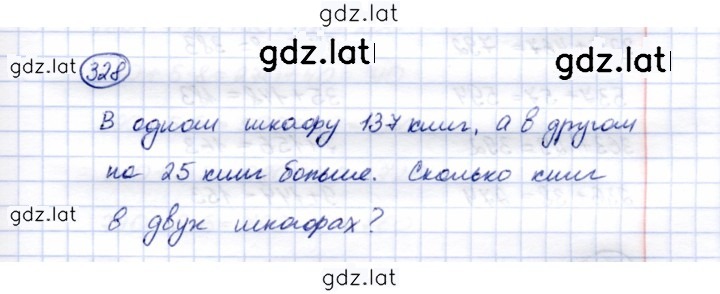 gdz.lat
gdz.lat
gdz.lat
gdz.lat
328
В одном шкафу 137 книг, а в другом
на 25 книг больше. Сколько книг
gdz.lat
в двух шкафах?
gdz.lat